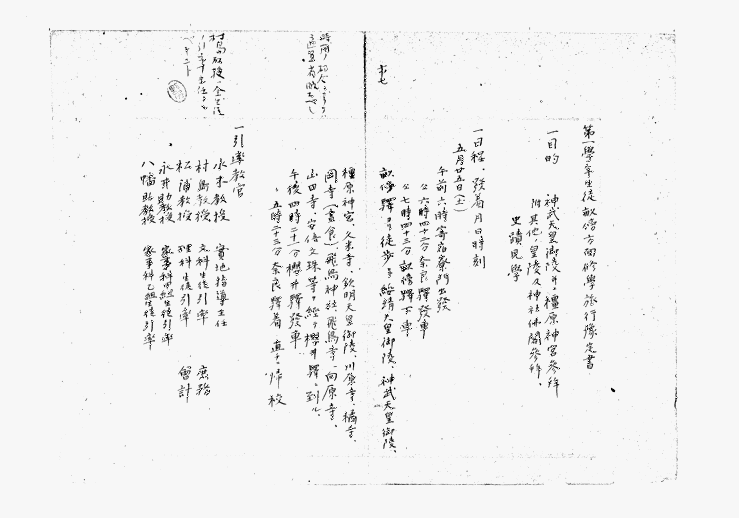 第一學年生徒畝傍方面修學旅行豫定書
一目的　神武天皇御陵並ニ橿原神宮參拜
附其他ノ皇陵及神社佛閣參拜、
史蹟見學
一日程、發着月日時刻
五月廿五日(土)
午前六時寄宿寮門出發
〃六時四十二分奈良驛發車
〃七時四十三分畝傍驛下車、
畝傍驛ヨリ徒歩ニテ綏靖天皇御陵、神武天皇御陵、
橿原神宮、久米寺、欽明天皇御陵、川原寺、橘寺、
岡寺(晝食)、飛鳥神社、飛鳥寺、向原寺、
山田寺、安倍文珠等ヲ經テ櫻井驛ニ到ル、
午後四時二十八分櫻井驛發車
〃五時二十三分奈良驛着　直チニ帰校
一引率教官
水木教授　實地指導主任
村島教授　文科生徒引率　庶務
松浦教授　理科生徒引率　會計
永井助教授　家事科甲組生徒引率
八幡助教授　家事科乙組生徒引率
村島教授